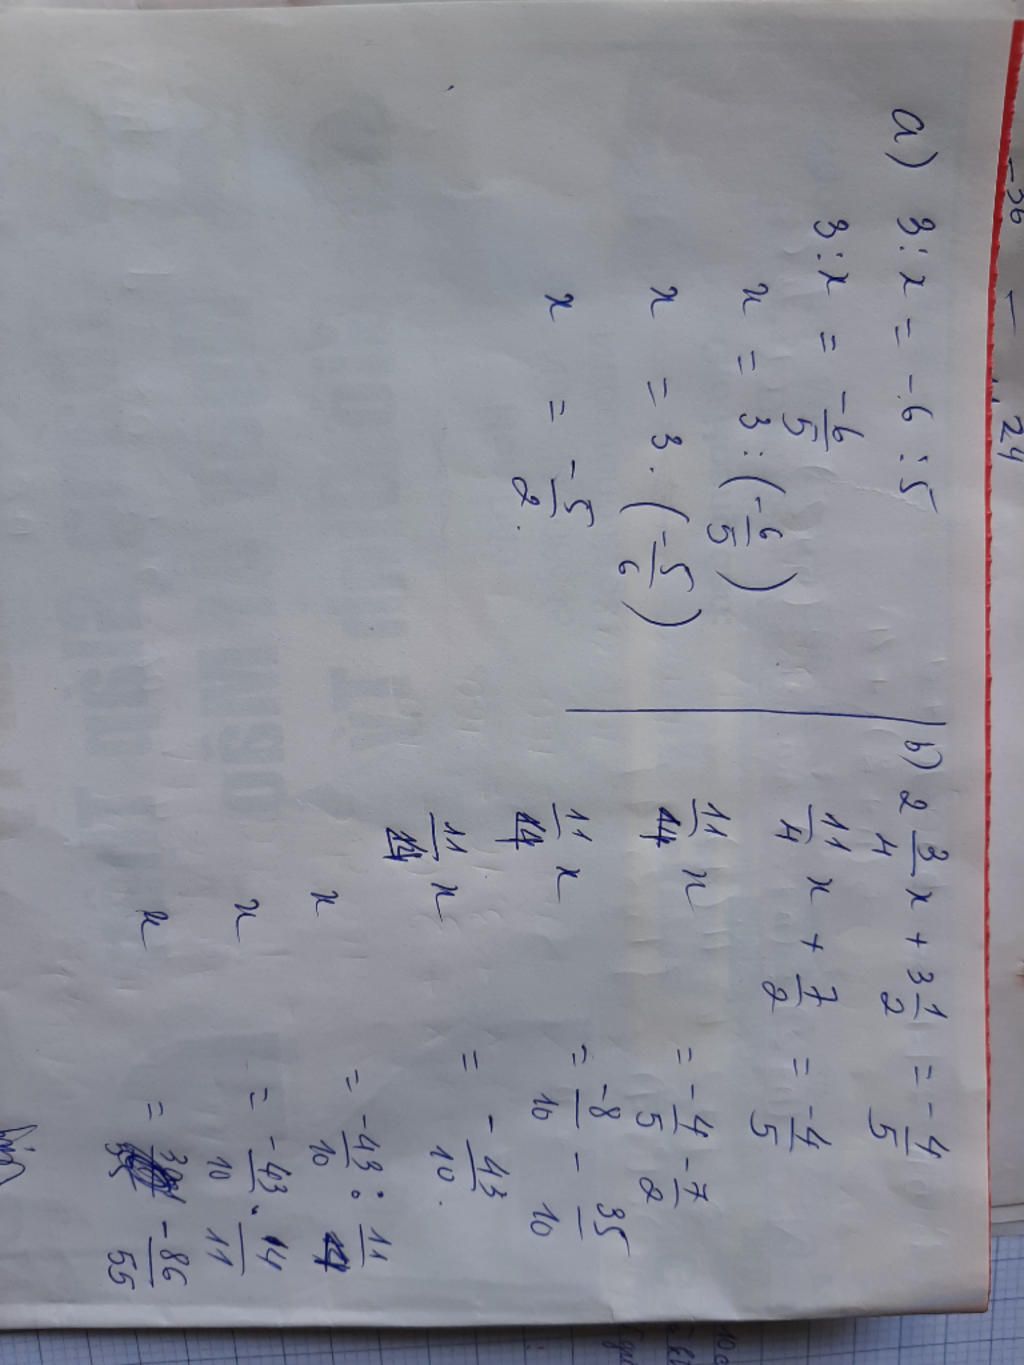 a) 3 : x = -6 : 5
3 : x = -6/5
x = 3 : (-6/5)
x = 3 . (-5/6)
x = -5/2.
b) 2 3/4 x + 3 1/2 = -4/5
11/4 x + 7/2 = -4/5
11/4 x = -4/5 - 7/2
11/4 x = -8/10 - 35/10
11/4 x = -43/10.
x = -43/10 : 11/4
x = -43/10 . 4/11
x = -86/55
-36 —
24